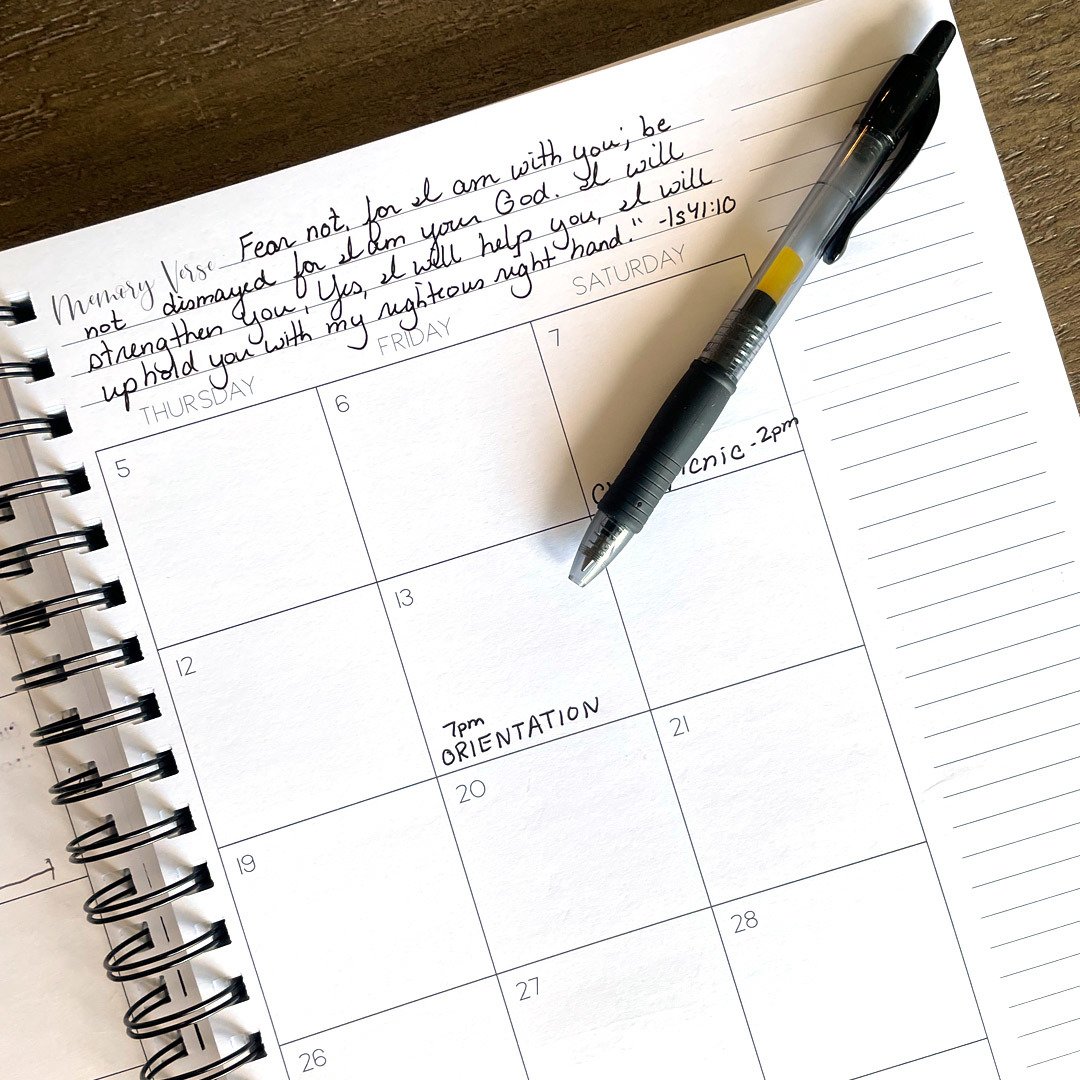 Memory Verse: Fear not, for I am with you; be
not dismayed for I am your God. I will
strengthen you, Yes, I will help you, I will
uphold you with my righteous right hand." -Is 41:10
THURSDAY FRIDAY SATURDAY
5 6 7
-2pm
12 13
7pm
ORIENTATION
19 20 21
26 27 28